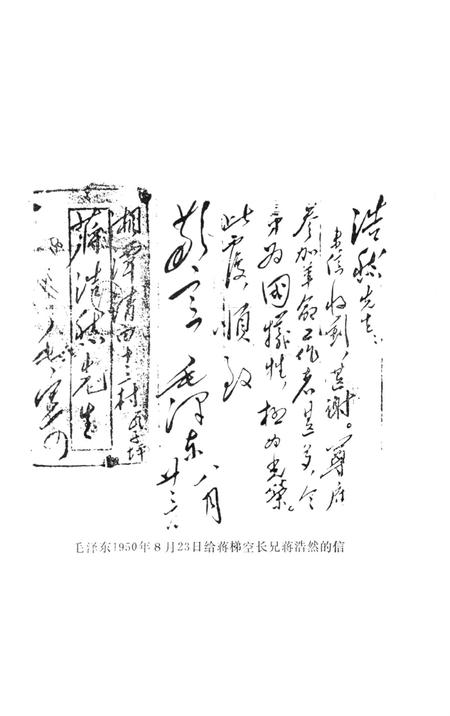 浩然先生：
来信收到，甚谢。尊府
参加革命工作者甚多，令
弟为國犧牲，极为光榮。
此覆，顺致
敬意 毛澤东 八月
廿三日
湘潭清田 村
蔣浩然先生
毛泽东1950年8月23日给蒋梯空长兄蒋浩然的信